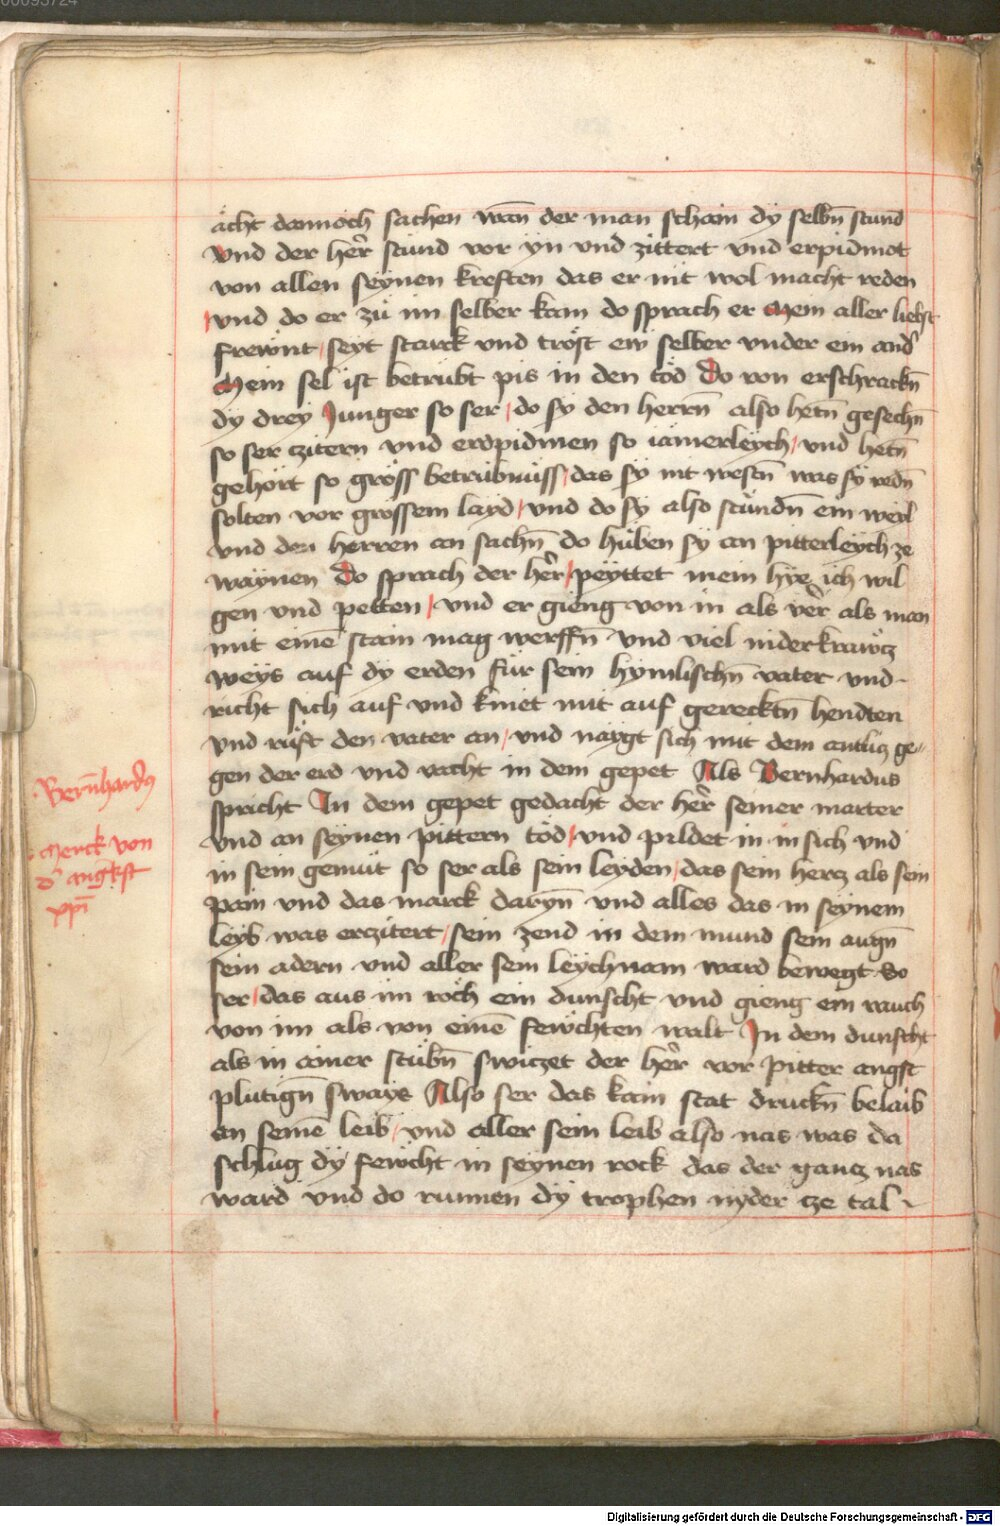 acht dannoch sachen wan̄ der man schain dy selbn̄ stund
vnd der her̄ stund vor yn vnd zittert vnd erpidmot
von allen seynen kreften das er nit wol macht reden
vnd do er zů im selber kam do sprach er Mein aller liebst
frewnt seyt starck vnd tröst ew selber vnder ein and̄
Mein sel ist betrubt pis in den töd Do von erschrackn̄
dy drey Junger so ser do sy den herrn̄ also hetn̄ gesechn̄
so ser zcitern vnd erdpidmen so iämerleych vnd hetn̄
gehört so gröss betrubnuss das sy nit westn̄ was sy redn̄
solten vor grossem layd vnd do sy also stůndn̄ ein weyl
vnd den herren an sachn̄ do hůben sy an pitterleych ze
waynen Do sprach der her̄ peyttet mein hye ich wil
gen vnd petten vnd er gieng von in als ver̄ als man
mit eine͞ stain mag werffn̄ vnd viel nider krawcz
weys auf dy erden für sein hymlischn̄ vater vnd
richt sich auf vnd kniet mit auf gerecktn̄ hendten
vnd růft den vater an vnd naygt sich mit dem antlicz ge
gen der erd vnd vacht in dem gepet Als Bernhardus
spricht In dem gepet gedacht der her̄ seiner marter
vnd an seynen pittern töd vnd pildet in in sich vnd
in sein gemüt so ser als sein leyden das sein hercz als sein
pain vnd das marck daryn̄ vnd alles das in seynem
leyb was erczitert sein zend in dem mund sein augn̄
sein adern vnd aller sein leychnam ward bewegt So
ser das aus im röch ein dunscht vnd gieng ein rauch
von im als von eine͞ fewchten walt In dem dunscht
als in ainer stůbn̄ swiczet der her̄ vor pitter angst
plutign̄ sways Also ser das kain stat druckn̄ belaib
an seine͞ leib vnd aller sein leib also nas was da
schlug dy fewcht in seynen rock das der gancz nas
ward vnd do runnen dy trophen nyder cze tal
Bern̄hard9
Merck von
d' angkst
xpi͞
Digitalisierung gefördert durch die Deutsche Forschungsgemeinschaft - DFG